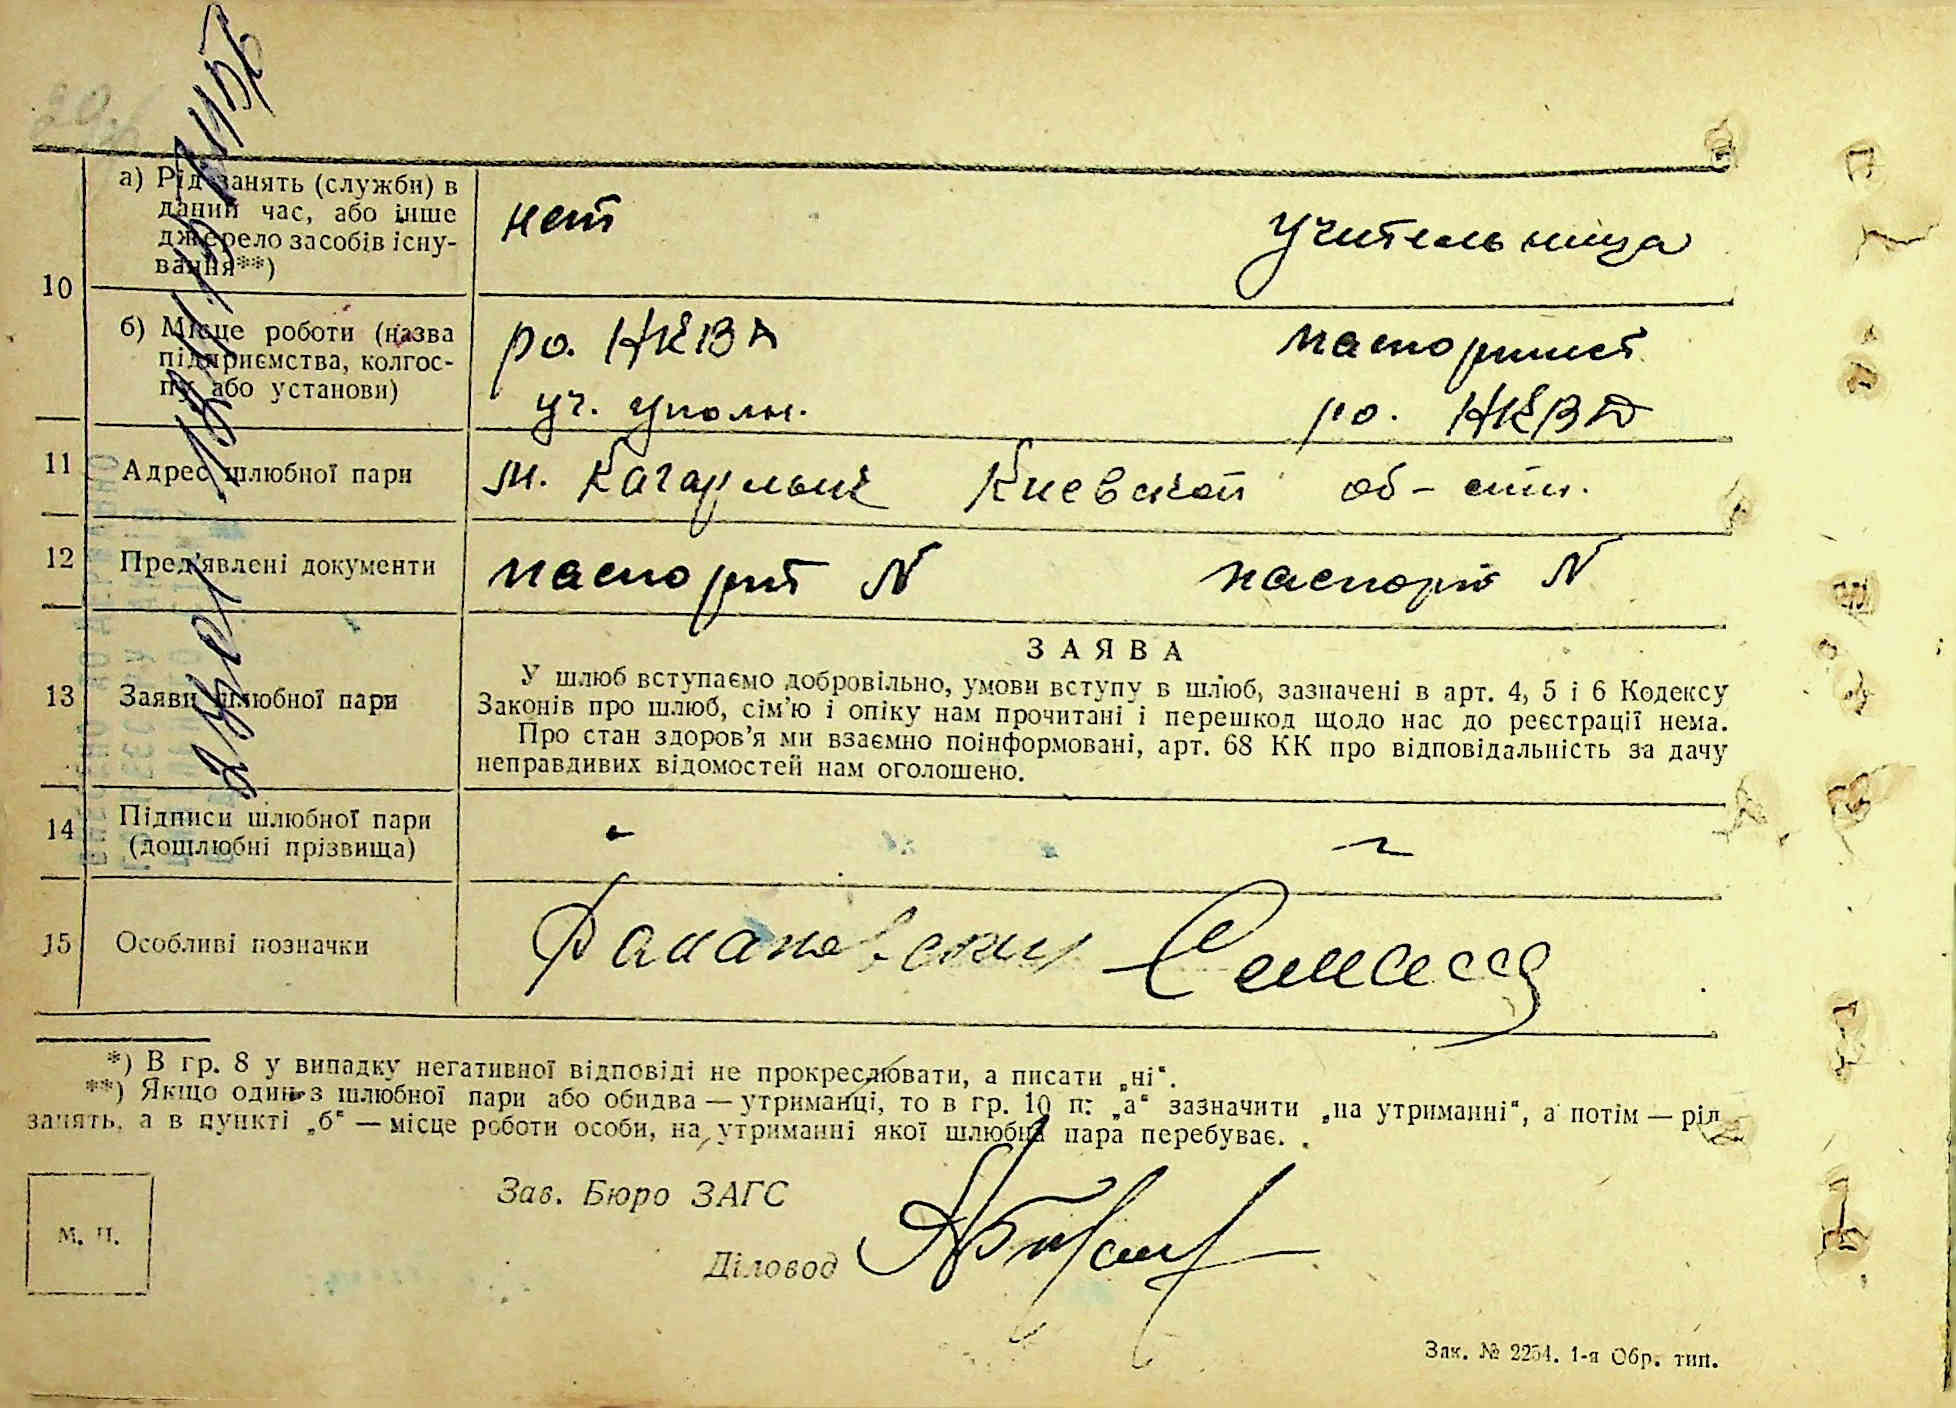 10
а) Рід занять (служби) в
даний час, або інше
джерело засобів існу-
вання**)
нет
учительница
б) Місце роботи (назва
підприємства, колгос-
пу або установи)
ро. НКВД
уч. уполн.
паспортист
ро. НКВД
11
Адрес шлюбної пари
м. Кагарлык Киевской об-сти.
12
Пред’явлені документи
паспорт N
паспорт N
13
Заяви шлюбної пари
ЗАЯВА
У шлюб вступаємо добровільно, умови вступу в шлюб, зазначені в арт. 4, 5 і 6 Кодексу
Законів про шлюб, сім’ю і опіку нам прочитані і перешкод щодо нас до реєстрації нема.
Про стан здоров’я ми взаємно поінформовані, арт. 68 КК про відповідальність за дачу
неправдивих відомостей нам оголошено.
14
Підписи шлюбної пари
(дошлюбні прізвища)
15
Особливі позначки
*) В гр. 8 у випадку негативної відповіді не прокреслювати, а писати „ні“.
**) Якщо один з шлюбної пари або обидва — утриманці, то в гр. 10 п: „а“ зазначити „на утриманні“, а потім — рід
занять, а в пункті „б“ — місце роботи особи, на утриманні якої шлюбна пара перебуває.
М. П.
Зав. Бюро ЗАГС
Діловод
Зак. № 2254. 1-я Обр. тип.